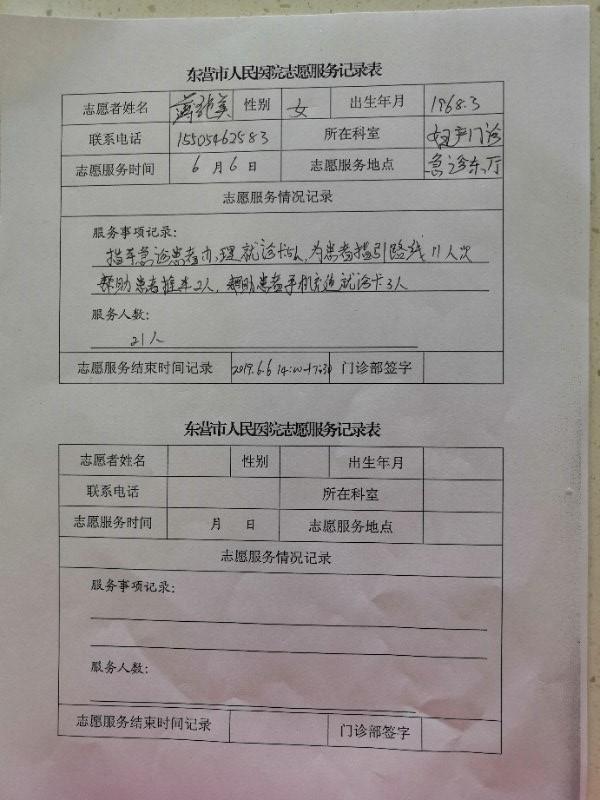 东营市人民医院志愿服务记录表
志愿者姓名 性别 女 出生年月 1968.3
联系电话 15505462583 所在科室 妇产门诊
志愿服务时间 6 月 6 日 志愿服务地点 急诊东厅
志愿服务情况记录
服务事项记录:
指导急诊患者办理就诊卡5人,为患者指引路线11人次
帮助患者推车2人,帮助患者手机充值就诊卡3人
服务人数:
21人
志愿服务结束时间记录 2019.6.6 14:00-17:30 门诊部签字
东营市人民医院志愿服务记录表
志愿者姓名 性别 出生年月
联系电话 所在科室
志愿服务时间 月 日 志愿服务地点
志愿服务情况记录
服务事项记录:
服务人数:
志愿服务结束时间记录 门诊部签字